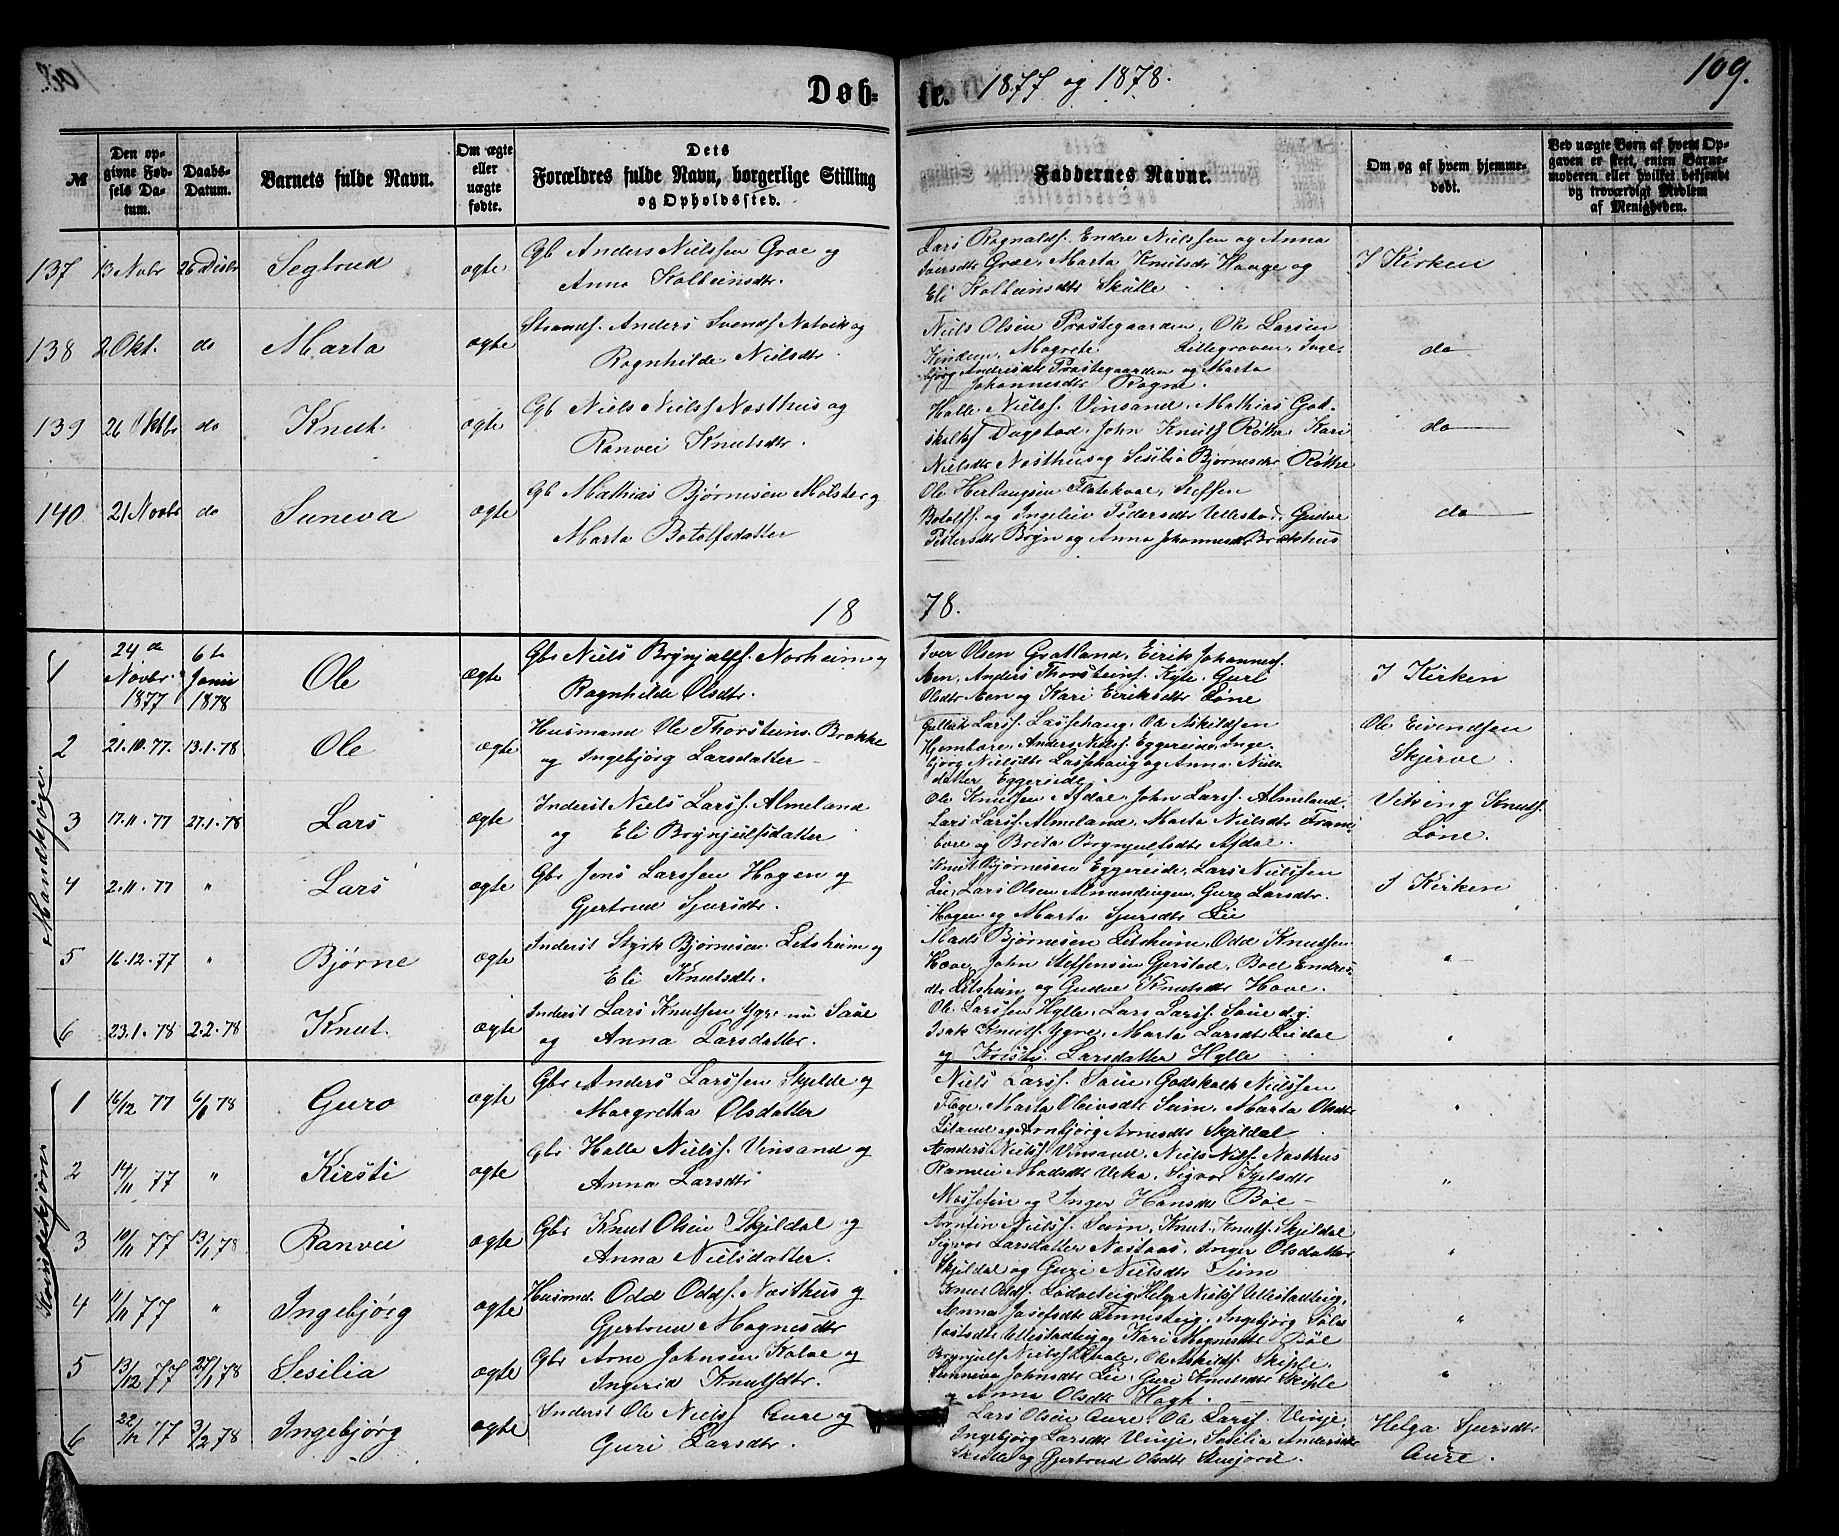 Døb-
te. 1877 og 1878.
109.
№
Den op-
givne Fød-
sels Da-
tum.
Daabs-
Datum.
Barnets fulde Navn.
Om ægte
eller
uægte
fødte.
Dets
Forældres fulde Navn, borgerlige Stilling
og Opholdssted.
Faddernes Navne.
Om og af hvem hjemme-
døbt.
Ved uægte Børn af hvem Op-
gaven er skeet, enten Barne-
moderen eller hvilket bekjendt
og troværdigt Medlem
af Menigheden.
137 13 Novbr 26 Desbr Segtrud ægte Gb Anders Nielssen Groe og
Anna Kolbeinsdtr.
Lars Rognaldsf. Endre Nielssen og Anna
Iversdtr Groe, Marta Knutsdtr Hauge og
Eli Kolbeinsdtr Skutle
I Kirken
138 2 Okt. do Marta ægte Strands. Anders Svends. Natvik og
Ragnhilde Nielsdtr
Niels Olsen Prestegaarden, Ole Larsen
Kindem, Magrete Lillegraven, Inge-
bjørg Andersdtr Prestegaarden og Marta
Johannesdtr Rogne.
do
139 26 Oktbr do Knut ægte Gb Niels Nielsf Nesthus og
Ranvei Knutsdtr.
Halle Nielsf. Vinsand, Mathias God-
skalksf Dagestad, John Knutsf Røthe, Kari
Nielsdtr Nesthus og Sesilia Bjørnesdtr Røthe
do
140 21 Novbr do Suneva ægte Gb Mathias Bjørnesen Mølster og
Marta Botolfsdatter
Ole Herlaugsen Flatekval, Steffen
Botolfs. og Ingeleiv Pedersdtr Ullestad, Gudve
Pedersdtr Bryn og Anna Johannesdtr Brækhus
do
18 78.
Mandkjøn
1 24de
Novbr.
1877
6te
Januar
1878
Ole ægte Gbr Niels Brynjulfs. Norheim og
Ragnhilde Olsdtr.
Iver Olsen Gratland, Eirik Johannes.
Æen, Anders Thorsteins. Kyte, Guri
Olsdtr Æen og Kari Eiriksdtr Løne
I Kirken
2 21.10.77. 13.1.78 Ole ægte Husmand Ole Thorsteins. Brekke
og Ingebjørg Larsdatter
Gullik Larsf. Lassehaug, Ole Askildsen
Hjembore, Anders Nielsf. Eggereide, Inge-
bjørg Nielsdtr Lassehaug og Anna Niels-
datter Eggereide
Ole Eivendsen
Skjerve
3 17.11.77 27.1.78 Lars ægte Inderst Niels Larsf. Almeland
og Eli Brynjulfsdatter
Ole Knutsen Afdal, John Larsf. Almeland,
Lars Larsf. Almeland, Marta Nielsdtr
og Brita Brynjulfsdtr Afdal
Viking Knuts.
Løne.
4 2.11.77 " Lars ægte Gbr Jens Larssen Hagen og
Gjertrud Sjursdtr.
Knut Bjørnesen Eggereide, Lars Nielssen
Lie, Lars Olsen Almendingen, Guro Larsdtr.
Hagen og Marta Sjursdtr Lie
I Kirken
5 16.12.77 " Bjørne ægte Inderst Styrk Bjørnesen Litsheim og
Eli Knutsdtr.
Mads Bjørnesen Litsheim, Odd Knutsen
Hove, John Steffensen Gjerstad, Boel Endres-
dtr Litsheim og Gudve Knutsdtr Hove.
"
6 23.1.78 2.2.78 Knut. ægte Inderst Lars Knutsen Ygre nu Saue
og Anna Larsdatter.
Ole Larssen Hylle, Lars Larsf. Saue d.y.
Isak Knutsf. Ygre, Marta Larsdtr
og Kristi Larsdatter Hylle
"
Kvindekjøn
1 16/12 77 6/1 78 Guro ægte Gbr Anders Larssen Skjelde og
Margretha Olsdatter
Niels Larsf. Saue, Godskalk Nielssen
Fløge, Marta Oleivsdtr Seim, Marta Olsdtr
Leland og Arnbjørg Arnesdtr Skjeldal
"
2 14/11 77 " Kirsti ægte Gbr Halle Nielsf. Vinsand og
Anna Larsdtr
Anders Nielsf. Vinsand, Niels Nilsf. Nesthus
Ranvei Madsdtr Urke, Sigvor Kjelsdtr
og Inger Hansdtr Bøe
"
3 10/11 77 13/1 78 Ranvei ægte Gbr Knut Olsen Skjeldal og
Anna Nielsdatter.
Arnfin Nielsf. Seim, Knut Knutsf. Skjeldal
Sigvor Larsdatter Nestaas, Inger Olsdatter
Skjeldal og Guri Nielsdtr Seim
"
4 11/11 77 " Ingebjørg ægte Husmd. Odd Oddsf. Nesthus og
Gjertrud Magnesdtr
Knut Oddsf. Lødveteig, Helge Nielsf Ullestadteig,
Anna Josefsdtr Tennesteig, Ingebjørg
Ullestadteig og Kari Magnesdtr Bøe
"
5 13/12 77 27/1 78 Sesilia ægte Gbr Arne Johnsen Kolve og
Ingerid Knutsdtr.
Brynjulf Nielsf Kvale, Ole Askildsf. Skiple,
Sunneva Johnsdtr Lie, Guri Knutsdtr Skiple
og Anna Olsdtr Hagh.
"
6 22/12 77 3/2 78 Ingebjørg ægte Inderst Ole Nielsf Aure og
Guri Larsdtr.
Lars Olsen Aure, Ole Larsf. Vinje,
Ingebjørg Larsdtr Vinje, Sesilia Andersdtr
Skutle og Gjertrud Olsdtr
Helga Sjursdtr
Aure.